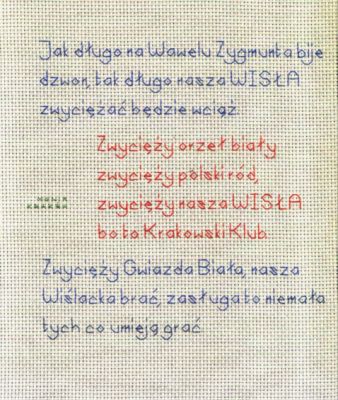 Jak długo na Wawelu Zygmunta bije
dzwon, tak długo nasza WISŁA
zwyciężać będzie wciąż.
Zwycięży orzeł biały
zwycięży polski ród,
zwycięży nasza WISŁA
bo to Krakowski Klub.
Zwycięży Gwiazda Biała, nasza
Wiślacka brać, zasługa to niemała
tych co umieją grać